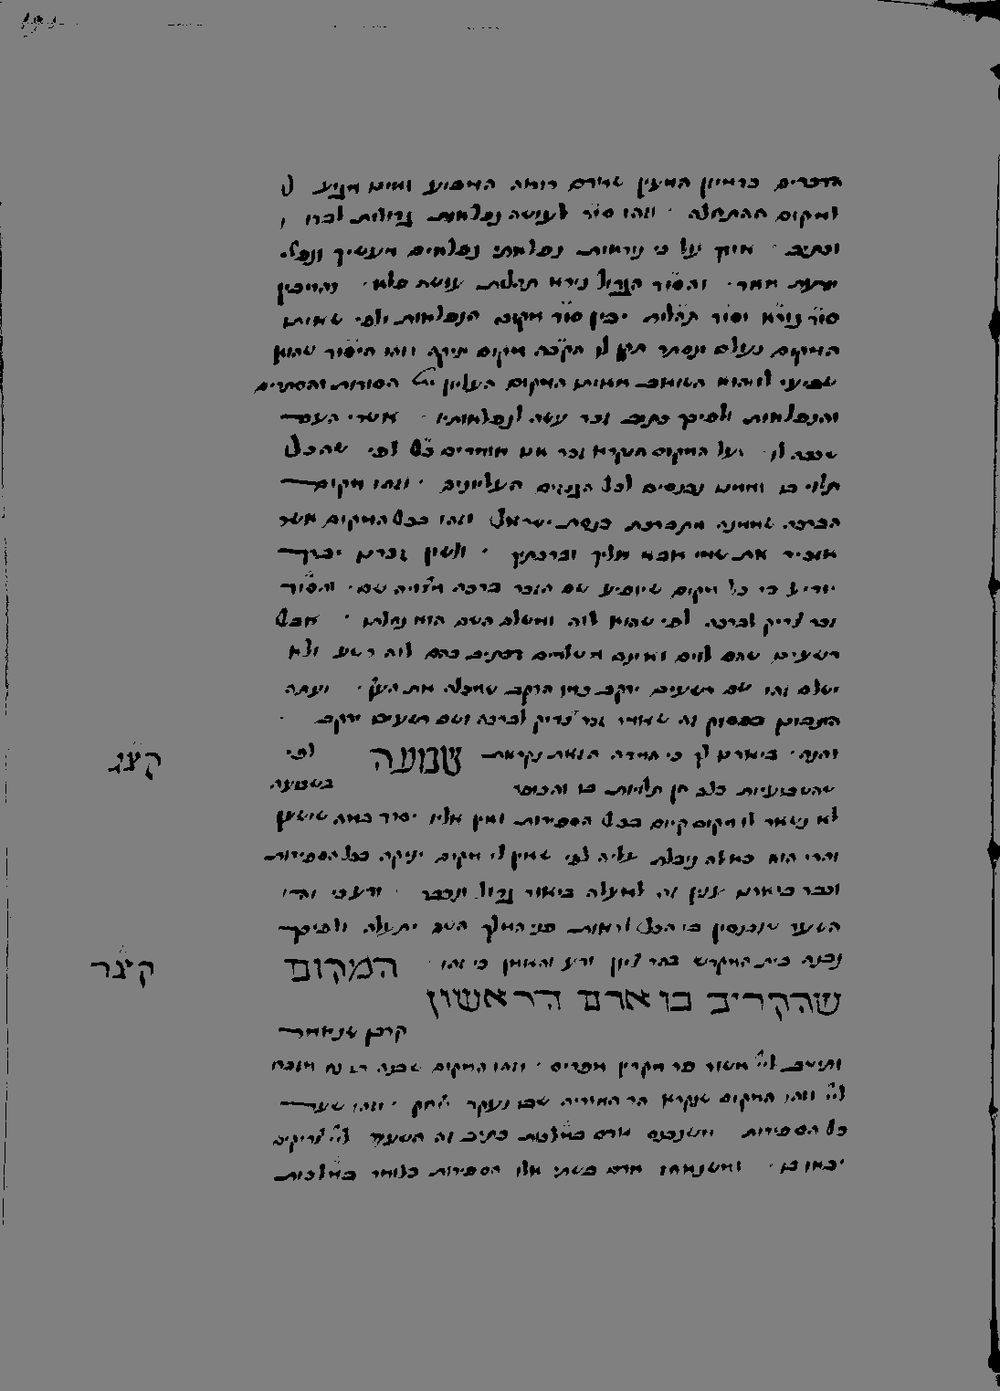 הדברים כדמיון המעין שאדם רואה המבוע ואינו מגיע
למקום ההתחלה וזהו סוד לעושה נפלאות גדולות לבדו
וכתיב אודך על כי נוראות נפלאתי נפלאים מעשיך ונפשי
יודעת מאד והסוד הגדול נורא תהלות עושה פלא והמבין
סוד נורא וסוד תהלות יבין סוד מקום הנפלאות ולפי שאותו
המקום נעלם ונסתר תקן לו הקבה מקום וזהו היסוד שהוא
שביעי לו והוא השואב מאותו המקום העליון הסודות והסתרים
והנפלאות ולפיכך כתוב זכר עשה לנפלאותיו אשרי העם
שככה לו ועל המקום הנקרא זכר אנו אומרים לפי שהכל
תלוי בו וממנו נכנסים לכל הגנזים העליונים וזהו מקום
הברכה שממנה מתברכת כנסת ישראל וזהו בכל המקום אשר
אזכיר את שמי אבא אליך וברכתיך ולשון
יודיע כי כל מקום שיופיע שם הזכר ברכה מצויה שם והסוד
זכר צדיק לברכה לפי שהוא לוה ומשלם השם הוא נחלתו אבל
רשעים שהם לוים ואינם משלמים דכתיב בהם לוה רשע ולא
ישלם זהו שם רשעים ירקב כמו הרקב שמכלה את העץ ועתה
התבונן בפסוק זה שאומר זכר צדיק לברכה ושם רשעים ירקב
והנה ביארנו לך כי המדה הזאת נקראת שבועה לפי
קצג
שהשבועיות כלם הן תלויות בו והכופר בשבועה
לא נשאר לו מקום קיום בכל הספירות ואין אליו יסוד במה שישען
והרי הוא כאלה נובלת עליה לפי שאין לו מקום יניקה בכל הספירות
וכבר ביארנו ענין זה למעלה ביאור גדול ונכבד ודע כי זהו
השער שנכנסין בו הכל לראות פני המלך השם יתעלה ולפיכך
נבנה בית המקדש בהר ציון ודע והאמן כי זהו המקום
קצד
שהקריב בו אדם הראשון
קרבן שנאמר
ותיטב ליי משור פר מקרין מפריס וזהו המקום שבנה בו נח מזבח
ליי וזהו המקום שנקרא הר המוריה שבו נעקד יצחק וזהו שער
כל הספירות וכשנכנס אדם במלכות כתיב זה השער ליי צדיקים
יבאו בו וכשנאחז אדם בשתי אלו הספירות כלומר במלכות